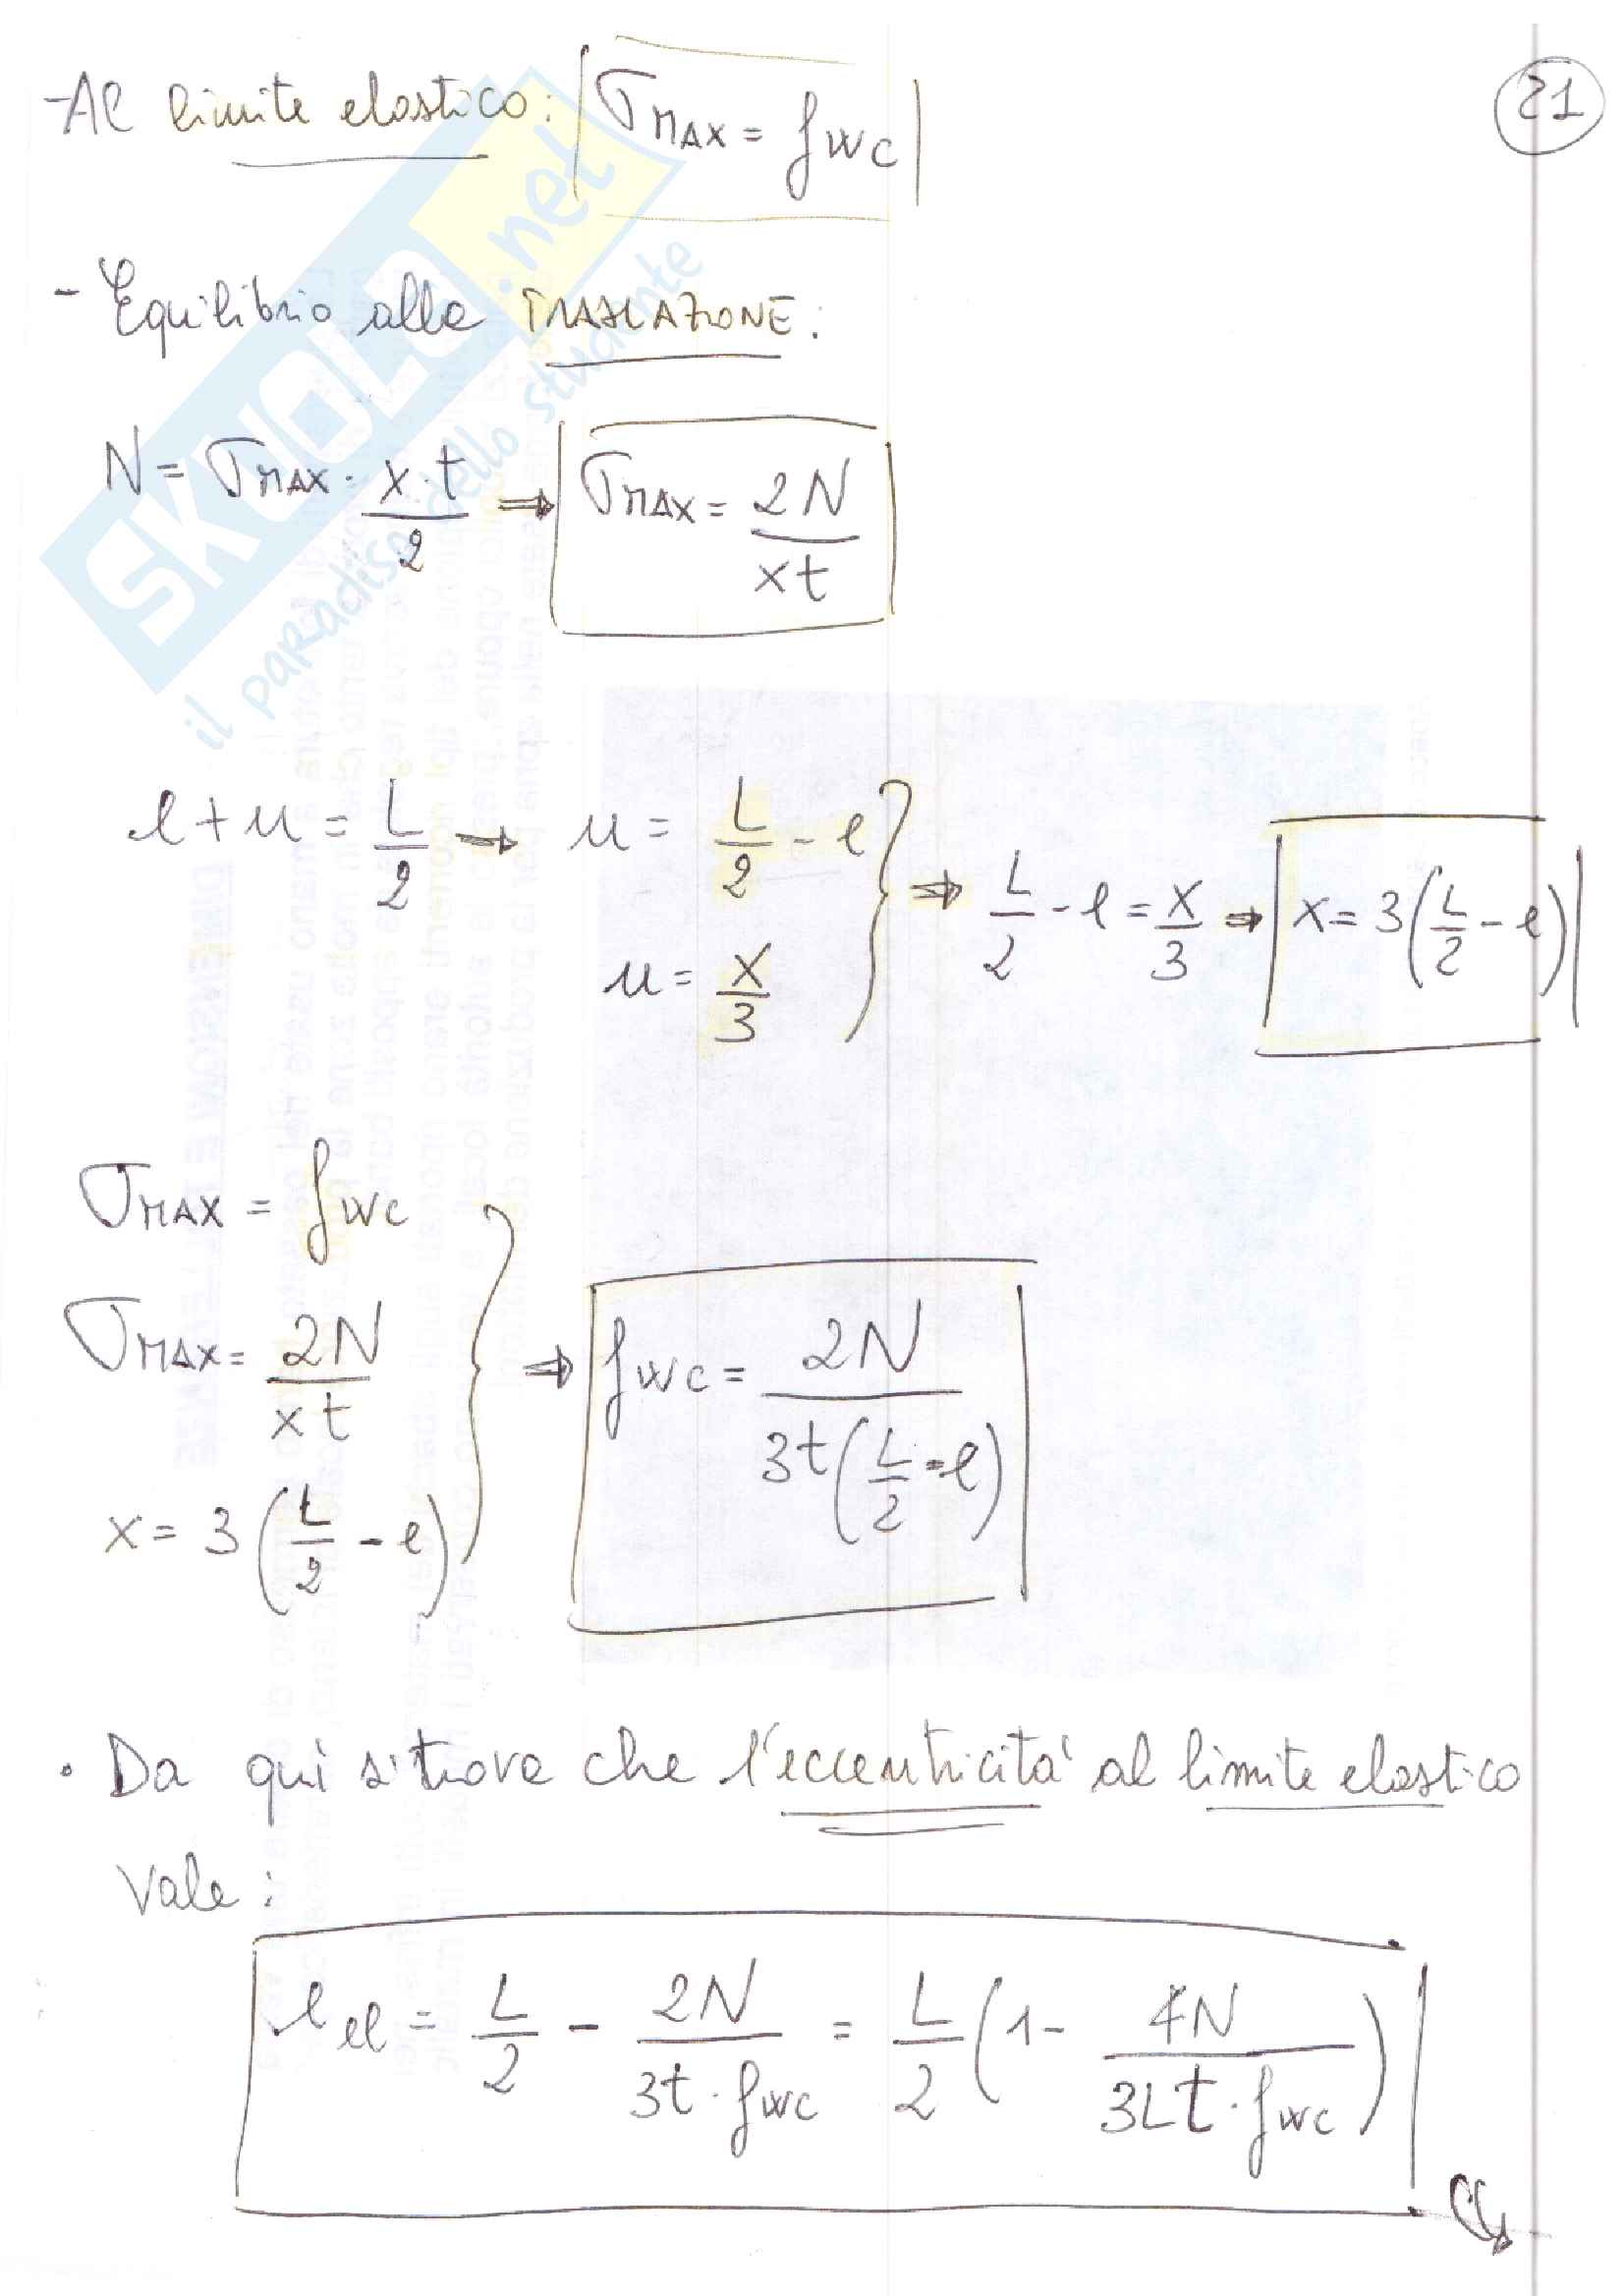 21
-Al limite elastico: σMAX = fwc
- Equilibrio alla TRASLAZIONE:
N = σMAX · x·t/2 ⇒ σMAX = 2N/xt
e + u = L/2 → u = L/2 - e
u = x/3
⇒ L/2 - e = x/3 ⇒ x = 3(L/2 - e)
σMAX = fwc
σMAX = 2N/xt
x = 3(L/2 - e)
⇒ fwc = 2N/3t(L/2 - e)
• Da qui si trova che l'eccentricità al limite elastico
vale:
e el = L/2 - 2N/3t·fwc = L/2 (1 - 4N/3Lt·fwc)
SKUOLA.net
il paradiso dello studente